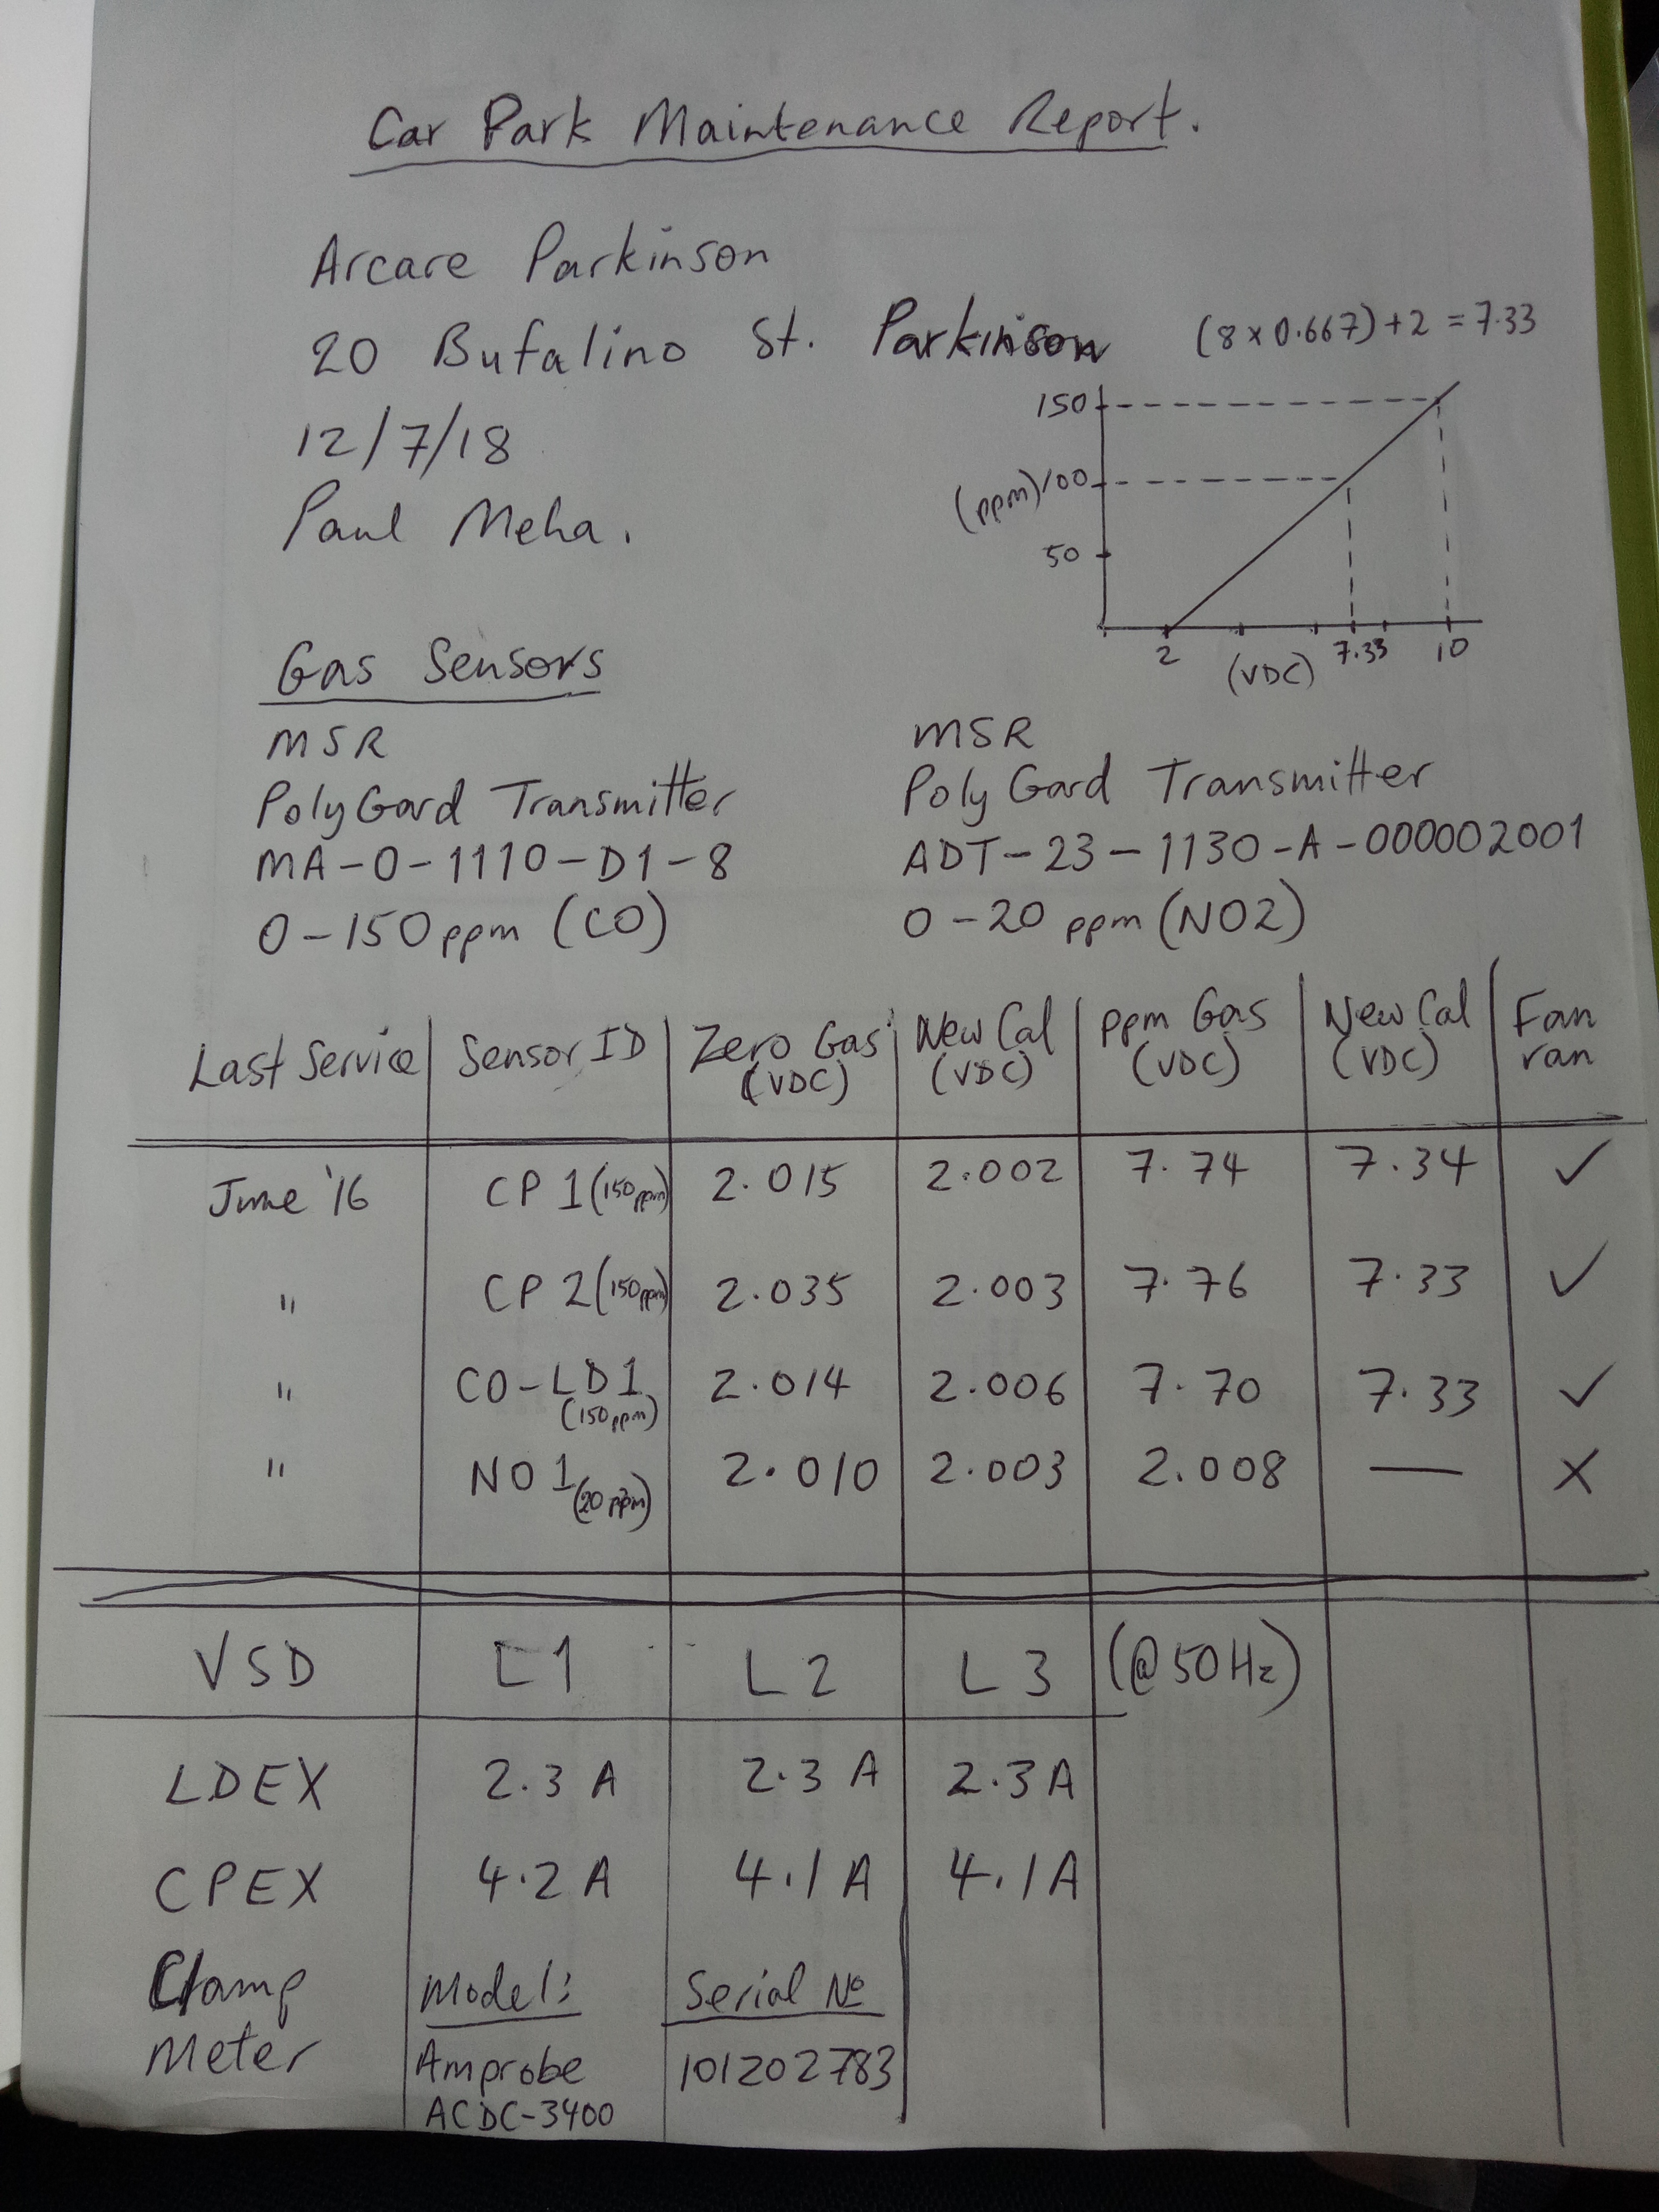 Car Park Maintenance Report.
Arcare Parkinson
20 Bufalino St. Parkinson
12/7/18
Paul Meha.
(8 x 0.667) + 2 = 7.33
150
(ppm) 100
50
2 (VDC) 7.33 10
Gas Sensors
MSR
PolyGard Transmitter
MA-0-1110-D1-8
0-150ppm (CO)
MSR
PolyGard Transmitter
ADT-23-1130-A-000002001
0-20 ppm (NO2)
Last Service Sensor ID Zero Gas (VDC) New Cal (VDC) ppm Gas (VDC) New Cal (VDC) Fan ran
June '16 CP 1 (150ppm) 2.015 2.002 7.74 7.34 ✓
" CP 2 (150ppm) 2.035 2.003 7.76 7.33 ✓
" CO-LD1 (150ppm) 2.014 2.006 7.70 7.33 ✓
" NO 1 (20 ppm) 2.010 2.003 2.008 — X
VSD L1 L2 L3 (@50Hz)
LDEX 2.3 A 2.3 A 2.3 A
CPEX 4.2 A 4.1 A 4.1 A
Clamp Model: Serial No
Meter Amprobe 101202783
ACDC-3400